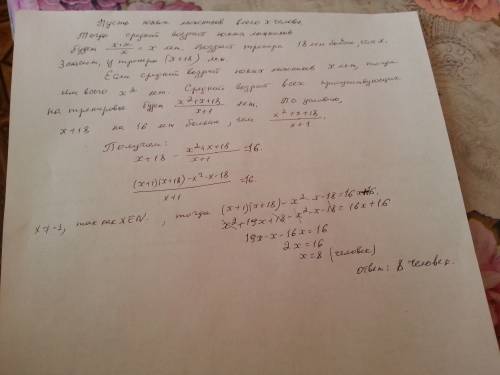 Пусть юных лыжников всего x человек.
Тогда средний возраст юных лыжников
будет x·x/x = x лет. Возраст тренера 18 лет больше, чем x.
Значит, у тренера (x+18) лет.
Если средний возраст юных лыжников x лет, тогда
им всего x² лет. Средний возраст всех присутствующих
на тренировке будет (x²+x+18)/(x+1) лет. По условию,
x+18 на 16 лет больше, чем (x²+x+18)/(x+1).
Получаем:
x+18 - (x²+x+18)/(x+1) = 16.
((x+1)(x+18)-x²-x-18)/(x+1) = 16.
x≠-1, так как x∈N, тогда (x+1)(x+18)-x²-x-18=16x+16.
x²+19x+18-x²-x-18=16x+16
19x-x-16x=16
2x=16
x=8 (человек)
Ответ: 8 человек.